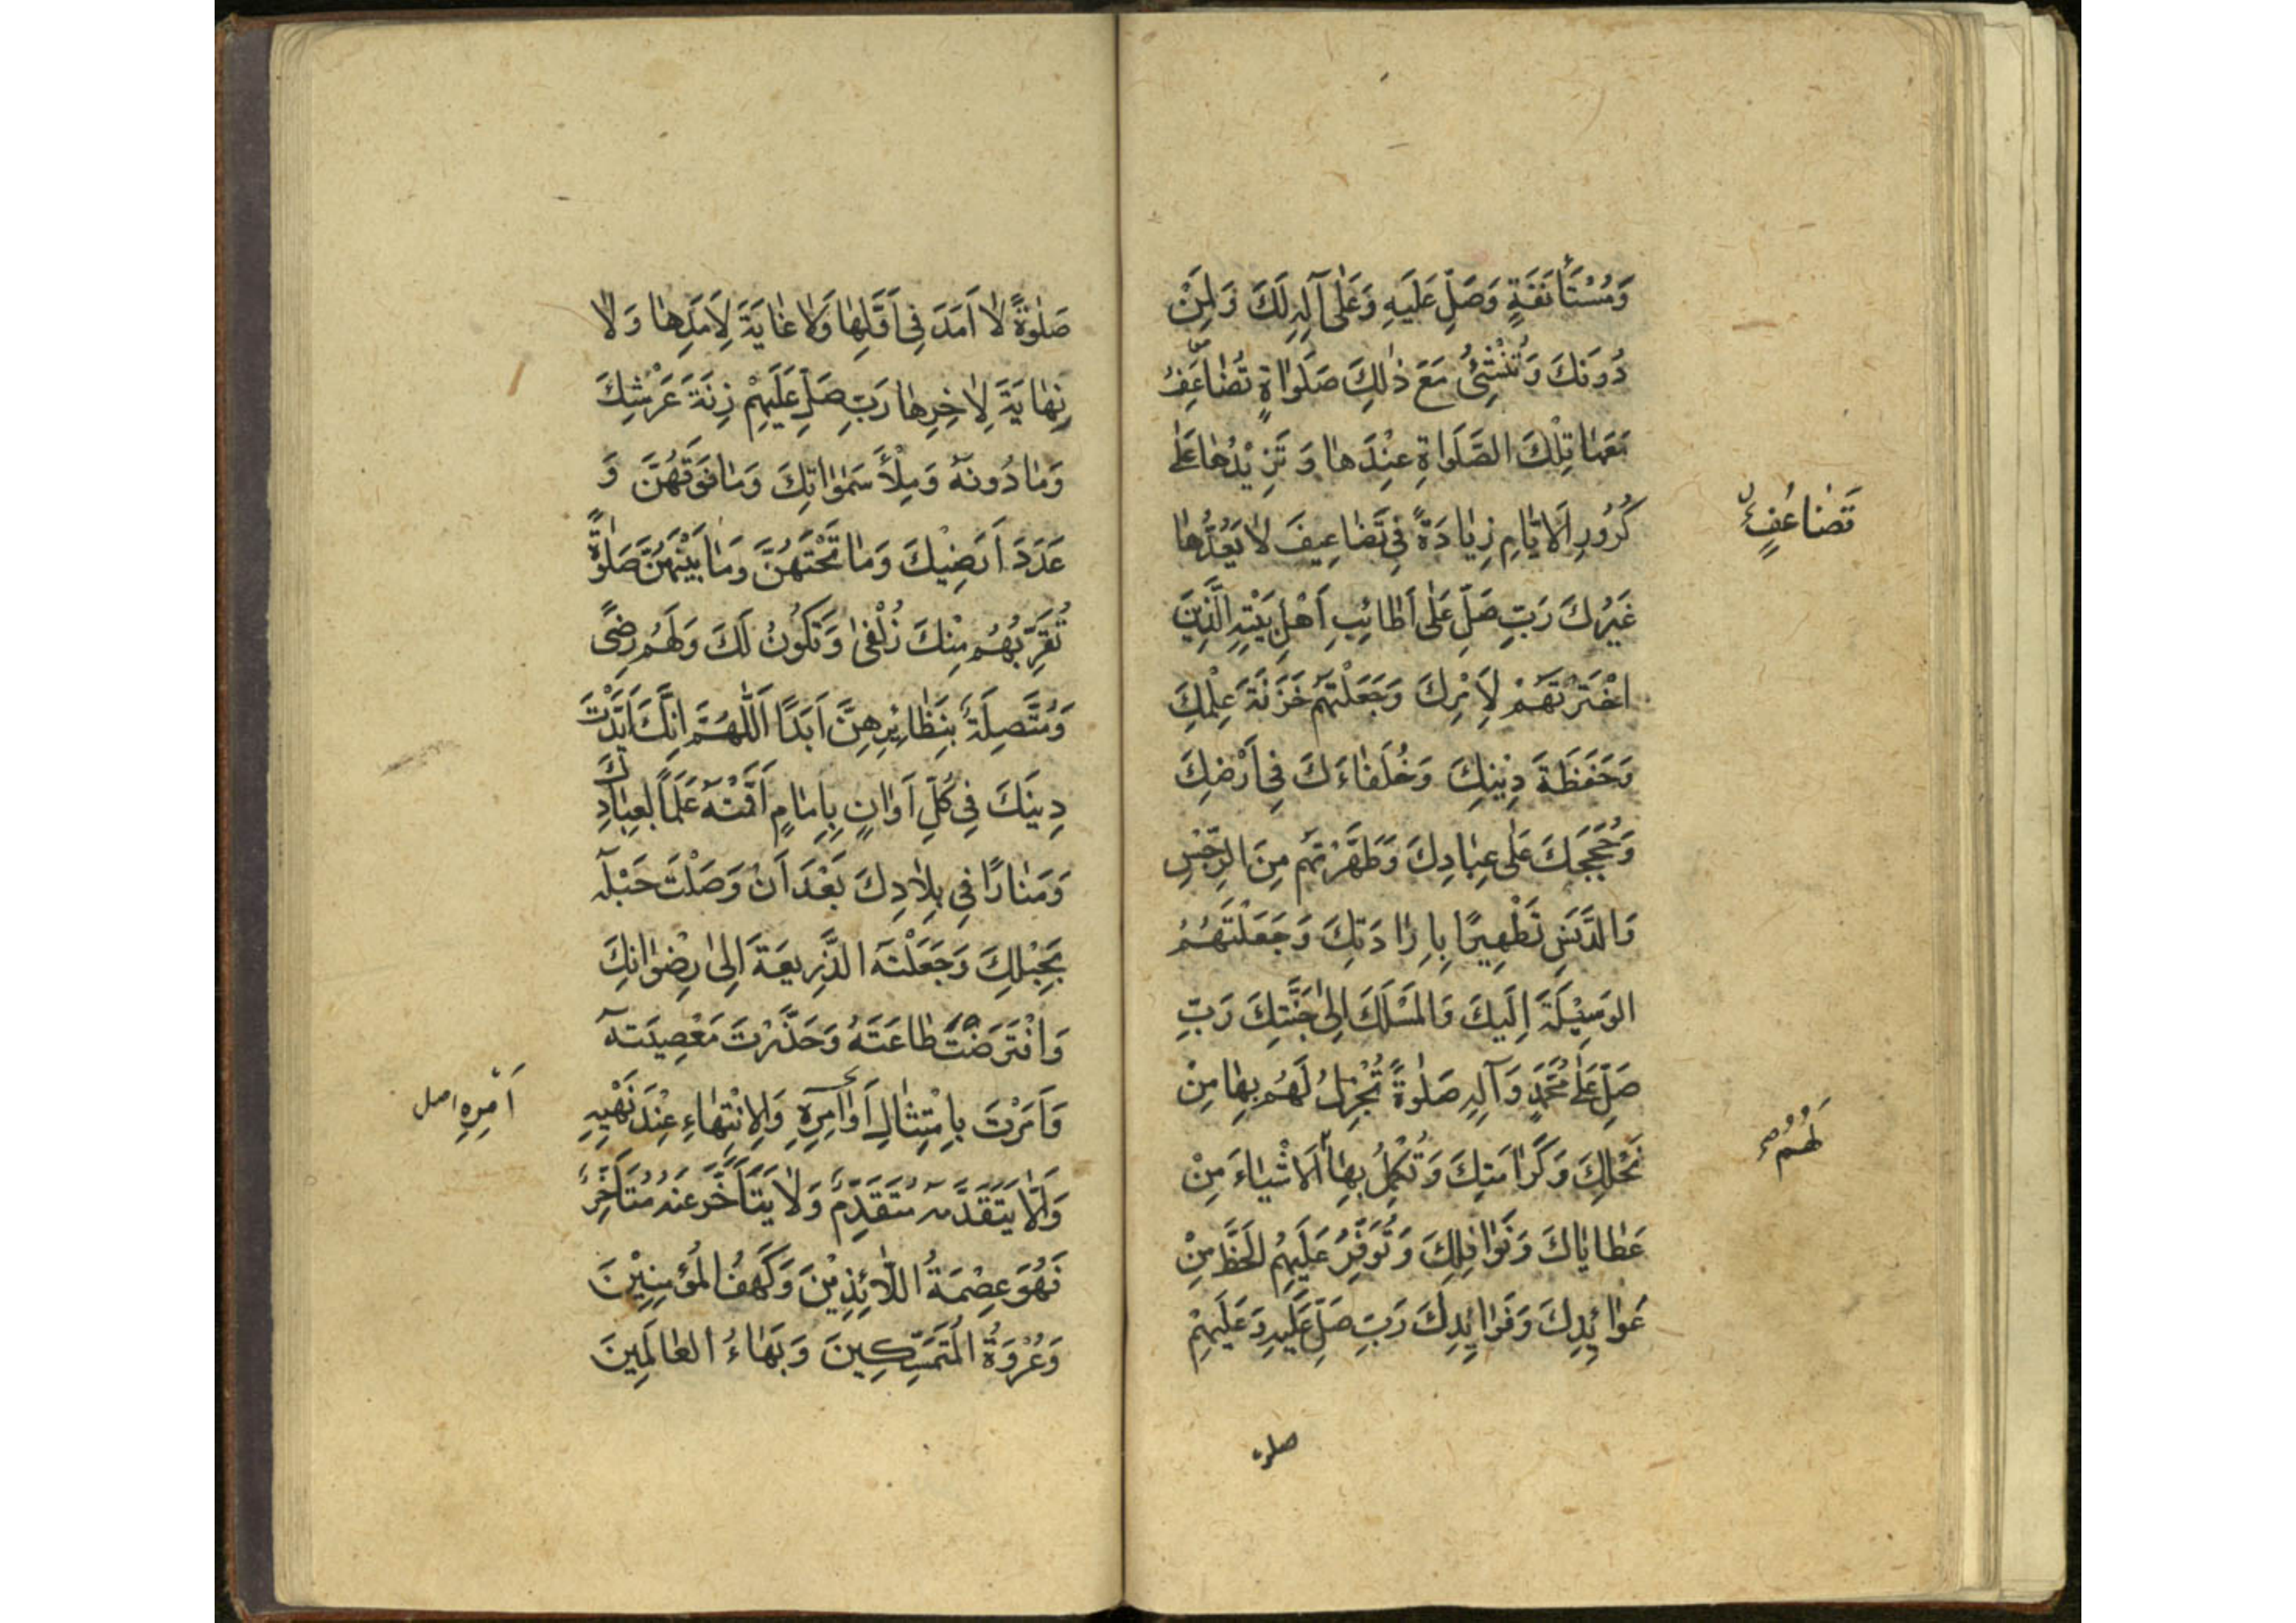 وَمُسْتَأْنَفَةٍ وَصَلِّ عَلَيهِ وَعَلٰى آلِهِ لَكَ وَلِمَنْ
دُونَكَ وَتُنْشِئُ مَعَ ذٰلِكَ صَلَوَاةٍ تُضَاعِفُ
مَعَهَا تِلْكَ الصَّلَوَاةِ عِنْدَهَا وَ تَزِيْدُهَا عَلٰى
كُرُورِ الْاَيَّامِ زِيَادَةً فِي تَضَاعِيفَ لَا يَعُدُّهَا
غَيْرُكَ رَبِّ صَلِّ عَلٰى اَطَائِبِ اَهْلِ بَيْتِهِ الَّذِينَ
اخْتَرْتَهُمْ لِاَمْرِكَ وَجَعَلْتَهُمْ خَزَنَةَ عِلْمِكَ
وَحَفَظَةَ دِيْنِكَ وَخُلَفَاءَكَ فِي اَرْضِكَ
وَحُجَجِكَ عَلٰى عِبَادِكَ وَطَهَّرْتَهُم مِنَ الرِّجْسِ
وَالدَّنَسِ تَطْهِيرًا بِاِرَادَتِكَ وَجَعَلْتَهُمُ
الوَسِيْلَةَ اِلَيكَ وَالْمَسْلَكَ اِلىٰ جَنَّتِكَ رَبِّ
صَلِّ عَلٰى مُحَمَّدٍ وَآلِهِ صَلٰوةً تُجْزِلُ لَهُم بِهَا مِنْ
نُحْلِكَ وَكَرَامَتِكَ وَتُكْمِلُ بِهَا الْاَشْيَاءَ مِنْ
عَطَايَاكَ وَنَوَافِلِكَ وَتُوَفِّرُ عَلَيهِمُ الْحَظَّ مِنْ
عَوَائِدِكَ وَفَوَائِدِكَ رَبِّ صَلِّ عَلَيهِ وَعَلَيهِمْ
صلوة
تَضَاعُفٍ
لَهُمُ
صَلٰوةً لَا اَمَدَ فِي اَوَّلِهَا وَلَا غَايَةَ لِاَمَدِهَا وَلَا
نِهَايَةَ لِاٰخِرِهَا رَبِّ صَلِّ عَلَيهِمْ زِنَةَ عَرْشِكَ
وَمَا دُونَهُ وَمِلْأَ سَمٰوَاتِكَ وَمَا فَوقَهُنَّ وَ
عَدَدَ اَرَضِيْكَ وَمَا تَحْتَهُنَّ وَمَا بَيْنَهُنَّ صَلٰوةً
تُقَرِّبُهُم مِنْكَ زُلْفىٰ وَتَكُونُ لَكَ وَلَهُم رِضىً
وَمُتَّصِلَةً بِنَظَائِرِهِنَّ اَبَدًا اَللّٰهُمَّ اِنَّكَ اَيَّدْتَ
دِينَكَ فِي كُلِّ اَوَانٍ بِاِمَامٍ اَقَمْتَهُ عَلَمًا لِعِبَادِكَ
وَمَنَارًا فِي بِلَادِكَ بَعْدَ اَنْ وَصَلْتَ حَبْلَهُ
بِحَبْلِكَ وَجَعَلْتَهُ الذَّرِيعَةَ اِلىٰ رِضْوَانِكَ
وَافْتَرَضْتَ طَاعَتَهُ وَحَذَّرْتَ مَعْصِيَتَهُ
وَاَمَرْتَ بِاِمْتِثَالِ اَوَامِرِهِ وَالِانْتِهَاءِ عِنْدَ نَهْيِهِ
وَاَلَّا يَتَقَدَّمَهُ مُتَقَدِّمٌ وَلَا يَتَأَخَّرَ عَنْهُ مُتَأَخِّرٌ
فَهُوَ عِصْمَةُ اللَّائِذِيْنَ وَكَهفُ الْمُؤمِنِيْنَ
وَعُرْوَةُ الْمُتَمَسِّكِينَ وَبَهَاءُ الْعَالَمِينَ
اَمْرِهِ اصل